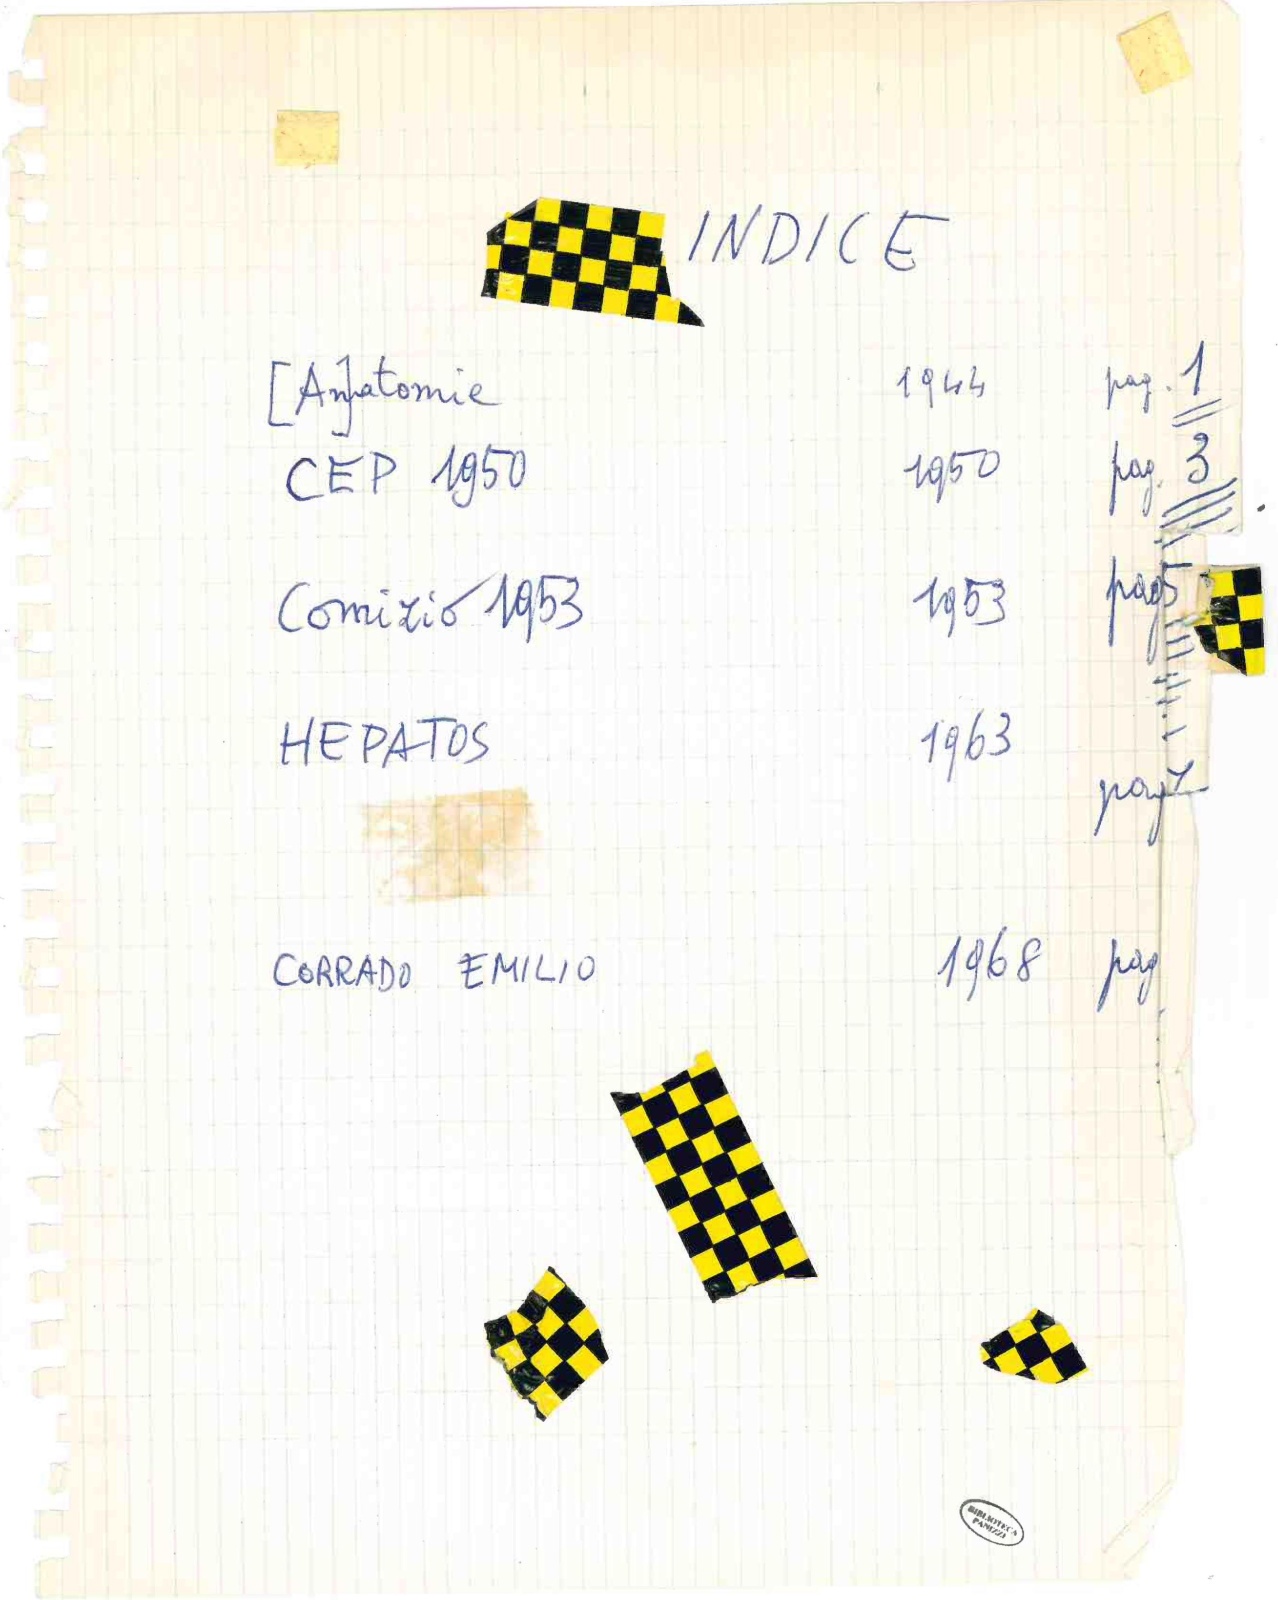 INDICE
[An]atomie 1944 pag. 1
CEP 1950 1950 pag. 3
Comizio 1953 1953 pag 5
HEPATOS 1963
pag 7
CORRADO EMILIO 1968 pag
BIBLIOTECA
PANIZZI